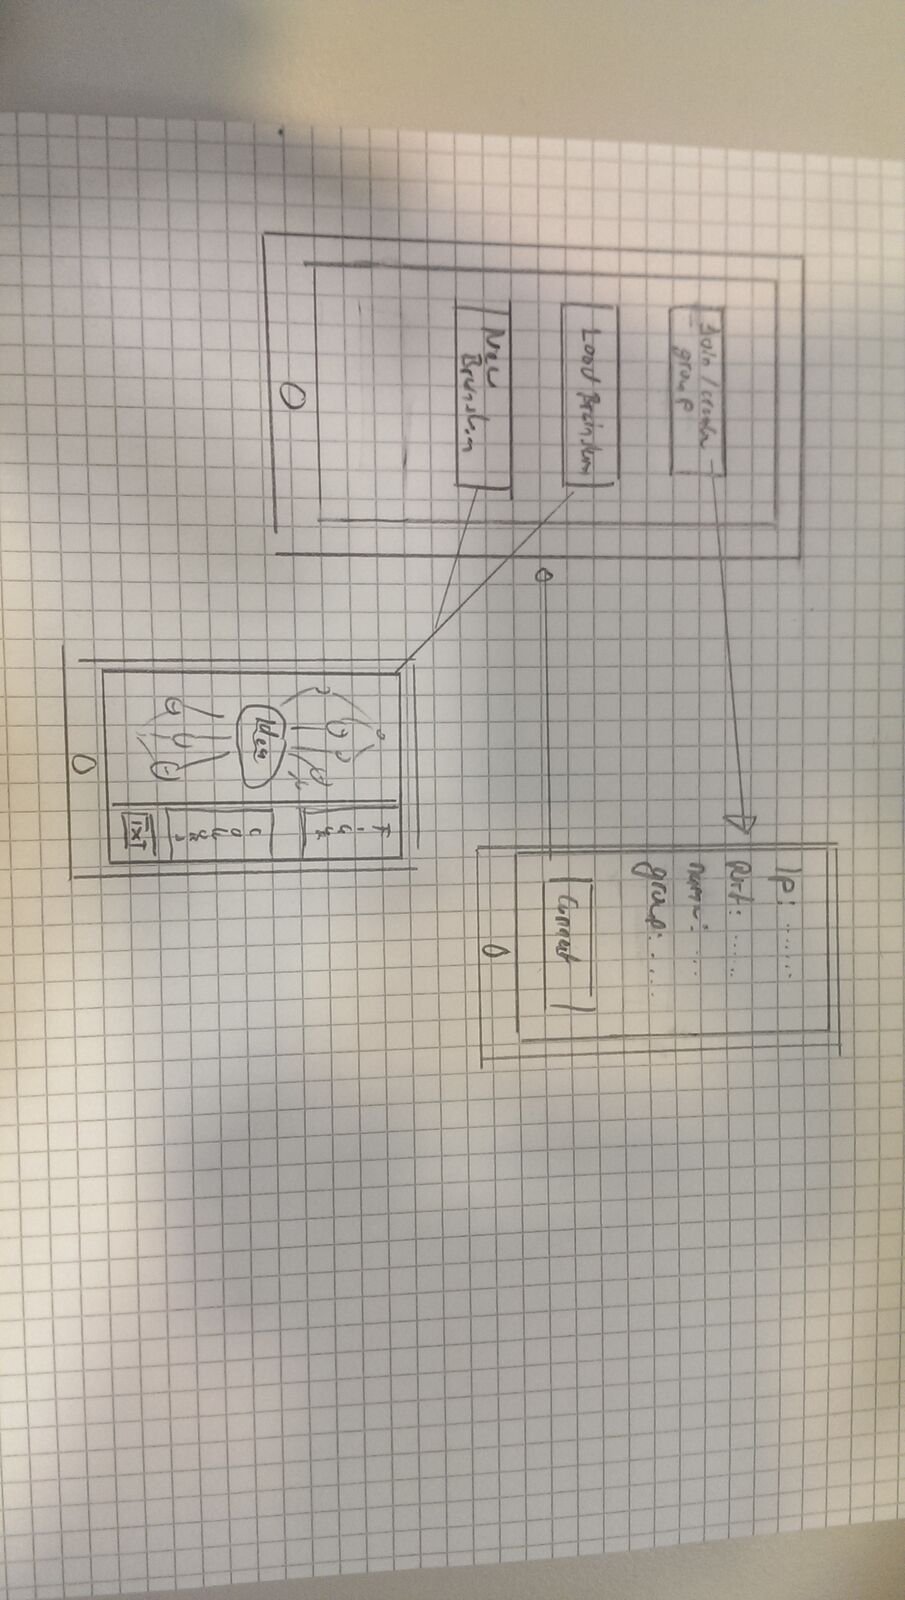 Join/create
group
Load Brainstorm
New
Brainstorm
Ip: ......
Port: .....
name: ...
group: .....
Connect
Idea
Colurs
TXT